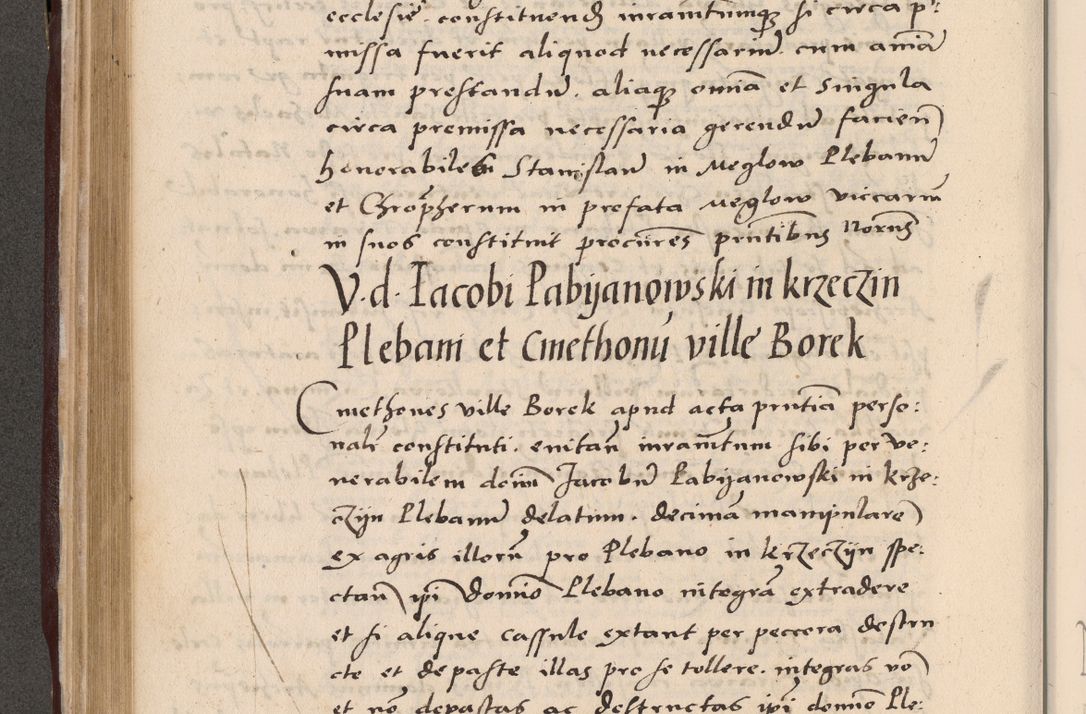 ecclesie. constituend iuramtumqz si circa p:
missa fuerit aliquod necessariu cum amia
suam prestandu. aliaqz omia et singula
circa premissa necessaria gerendu facien
honorabiles Stanislau in Meglow Plebanu
et Chropherum in prefata Meglow viccariu
in suos constituit procures pntibus Norus
V. d. Iacobi Pabyanowski in krzeczin
Plebani et Cmethonu ville Borek
Cmethones ville Borek apud acta pntia perso:
nalr constituti. euitan iuramtum sibi per ve:
nerabilem doim Jacobu Pabyanowski in krze:
czyn Plebanu delatum. decima manipulare
ex agris illoru pro Plebano in krzeczyn spe:
ctan ipi domino Plebano integra extradere
et si alique cassule extant per peccora destru
cte et depaste illas pro se tollere. integras vo
et no depastas ac destructas ipi domno Ple: